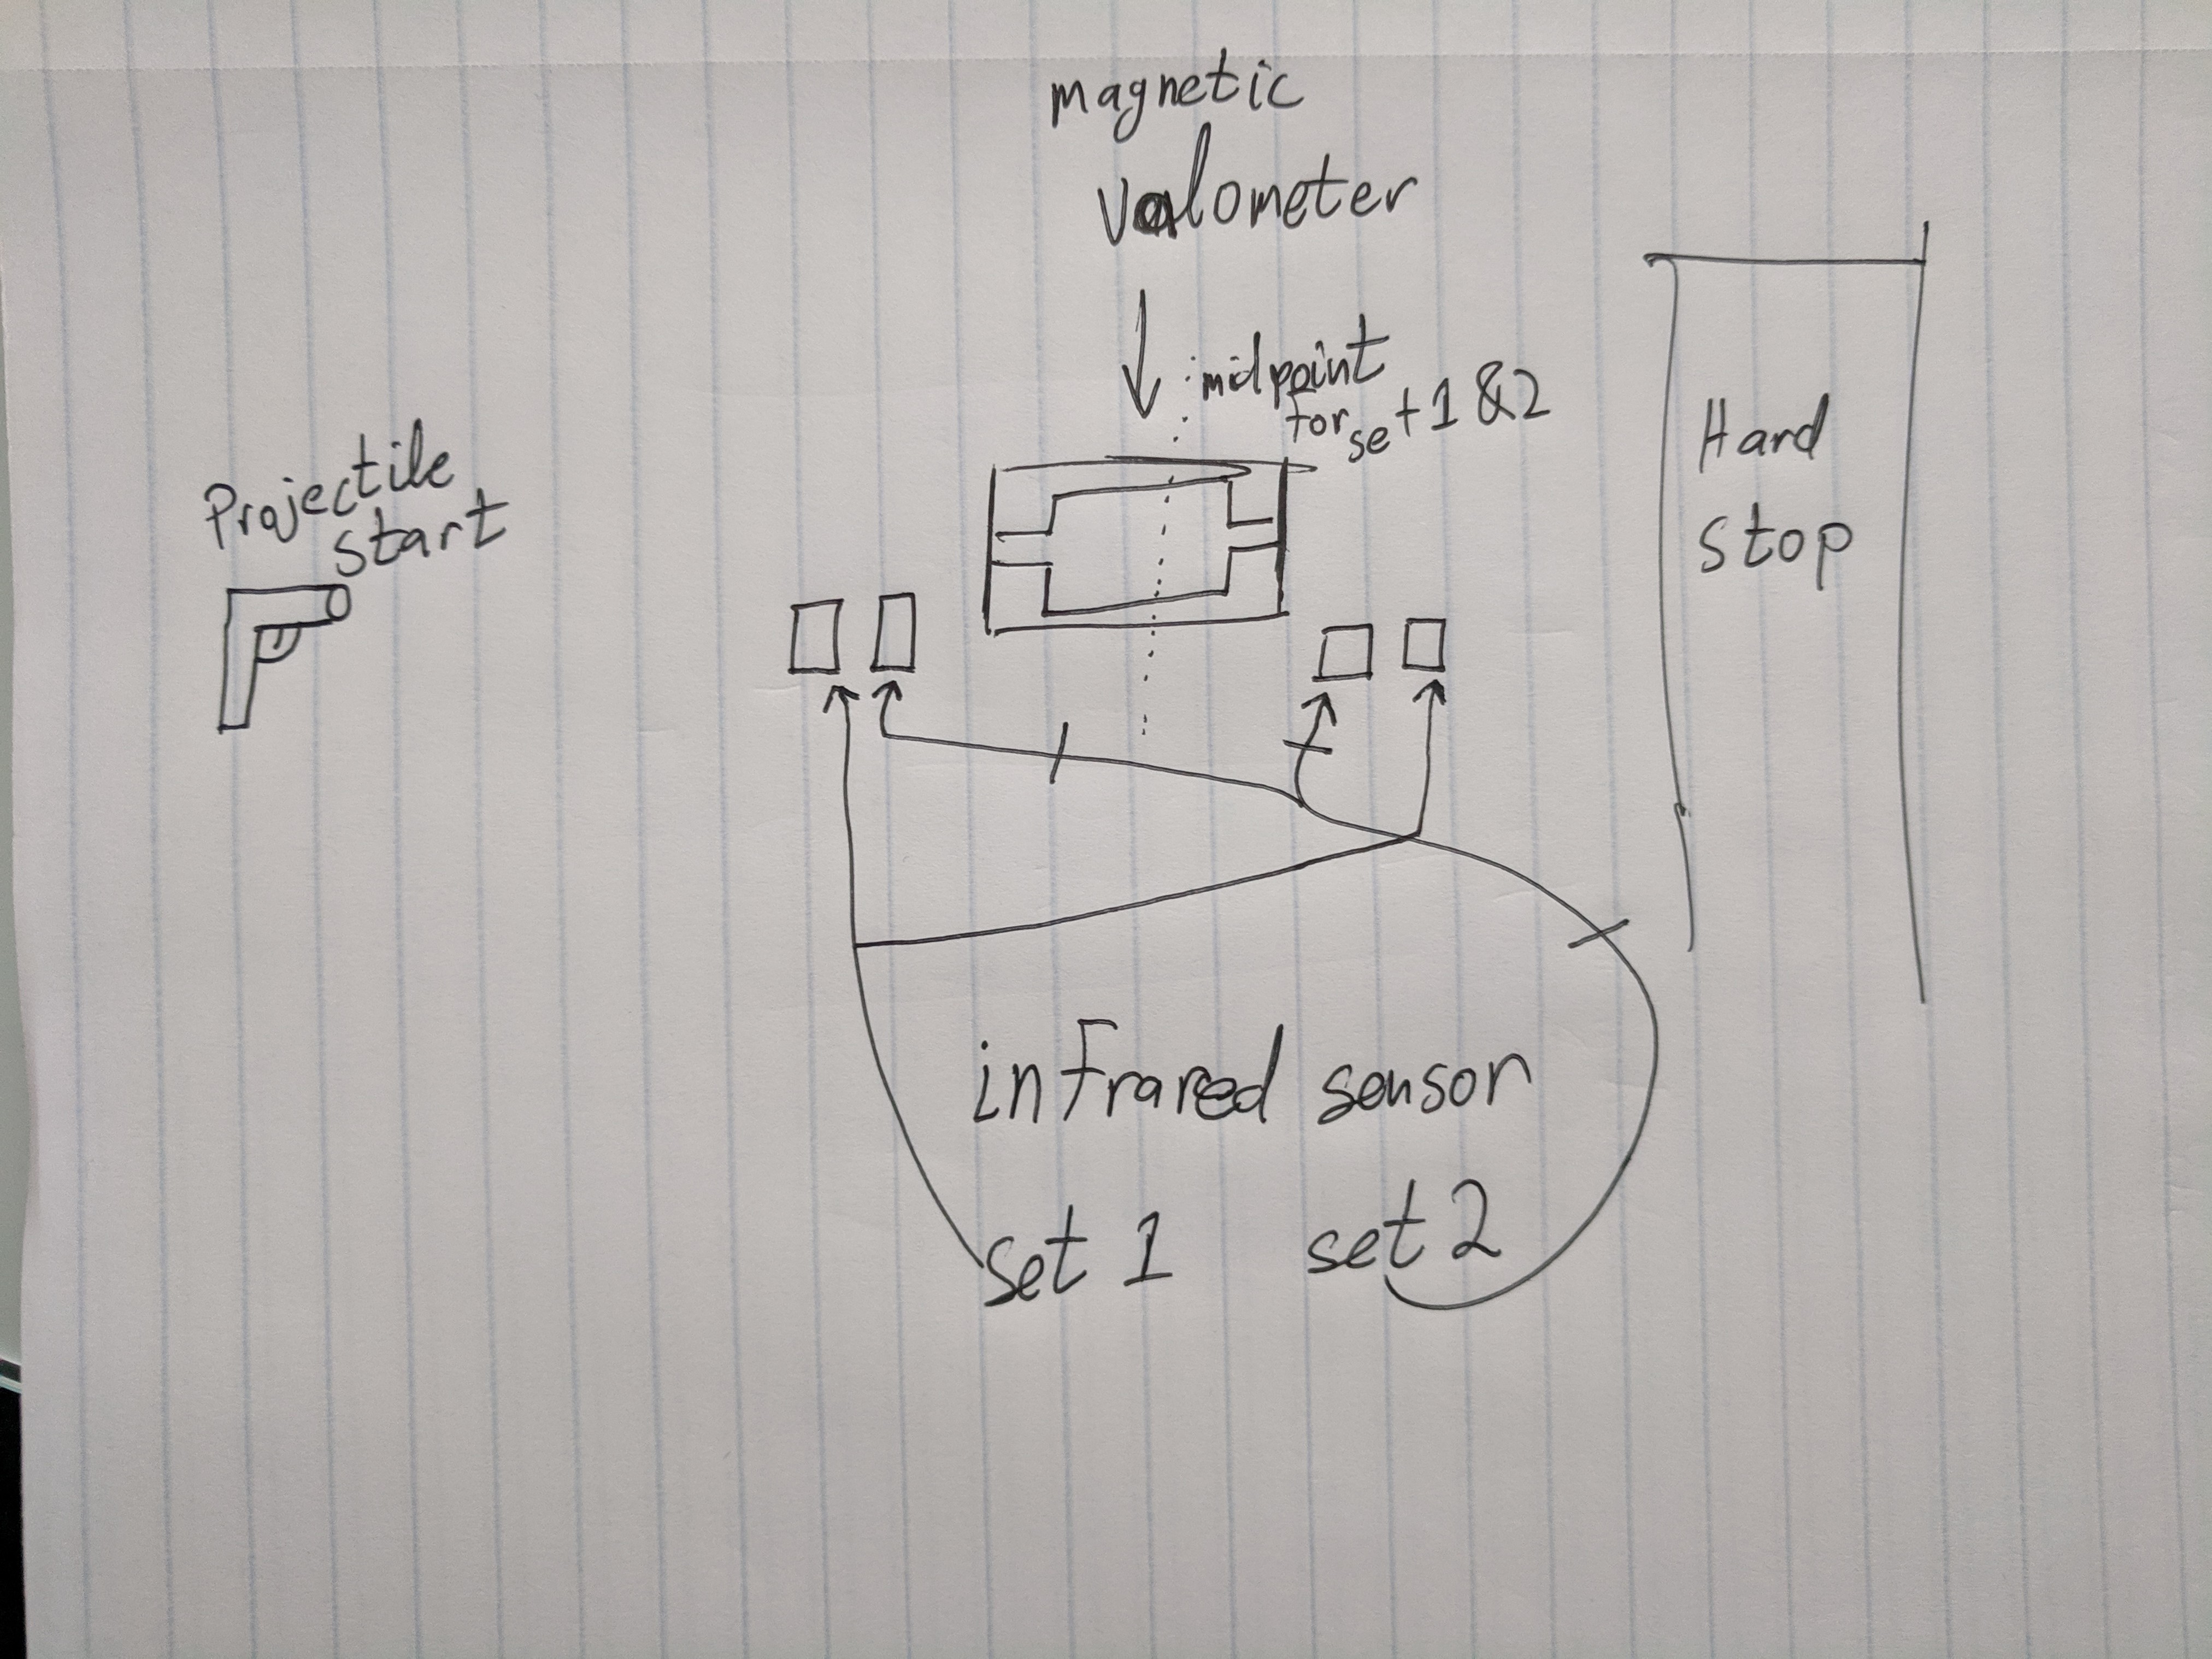 magnetic
valometer
midpoint
for set 1 & 2
Projectile
start
Hard
stop
infrared sensor
set 1 set 2